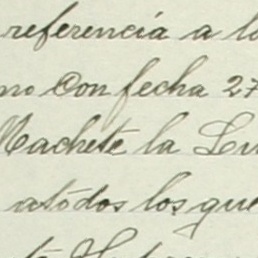 referencia a lo
no Con fecha 27
Machete la Lu
atódos los que